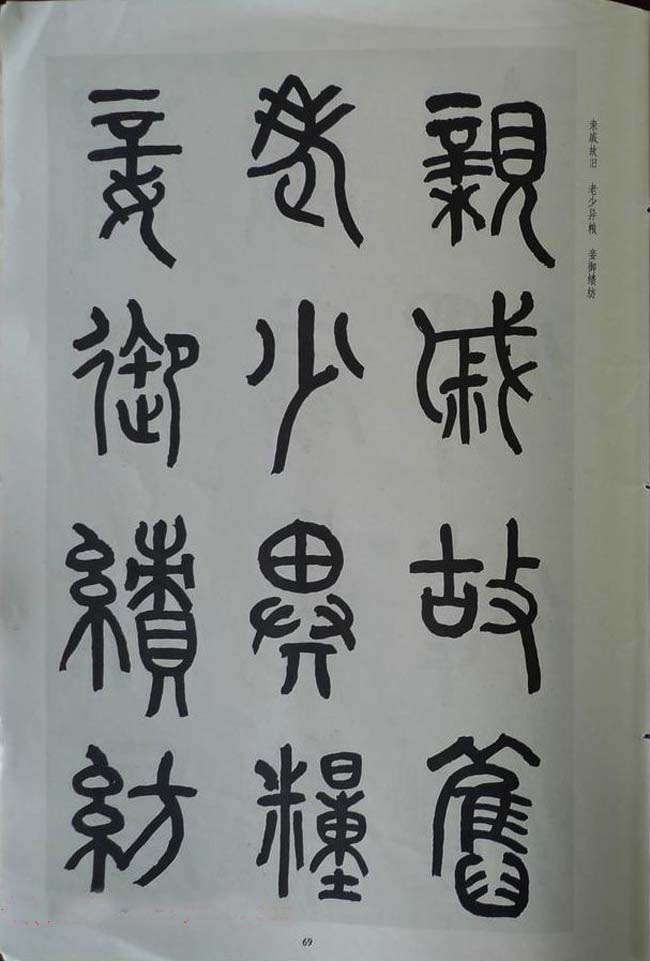 親戚故舊
老少異糧
妾御績紡
亲戚故旧　老少异粮　妾御绩纺
69